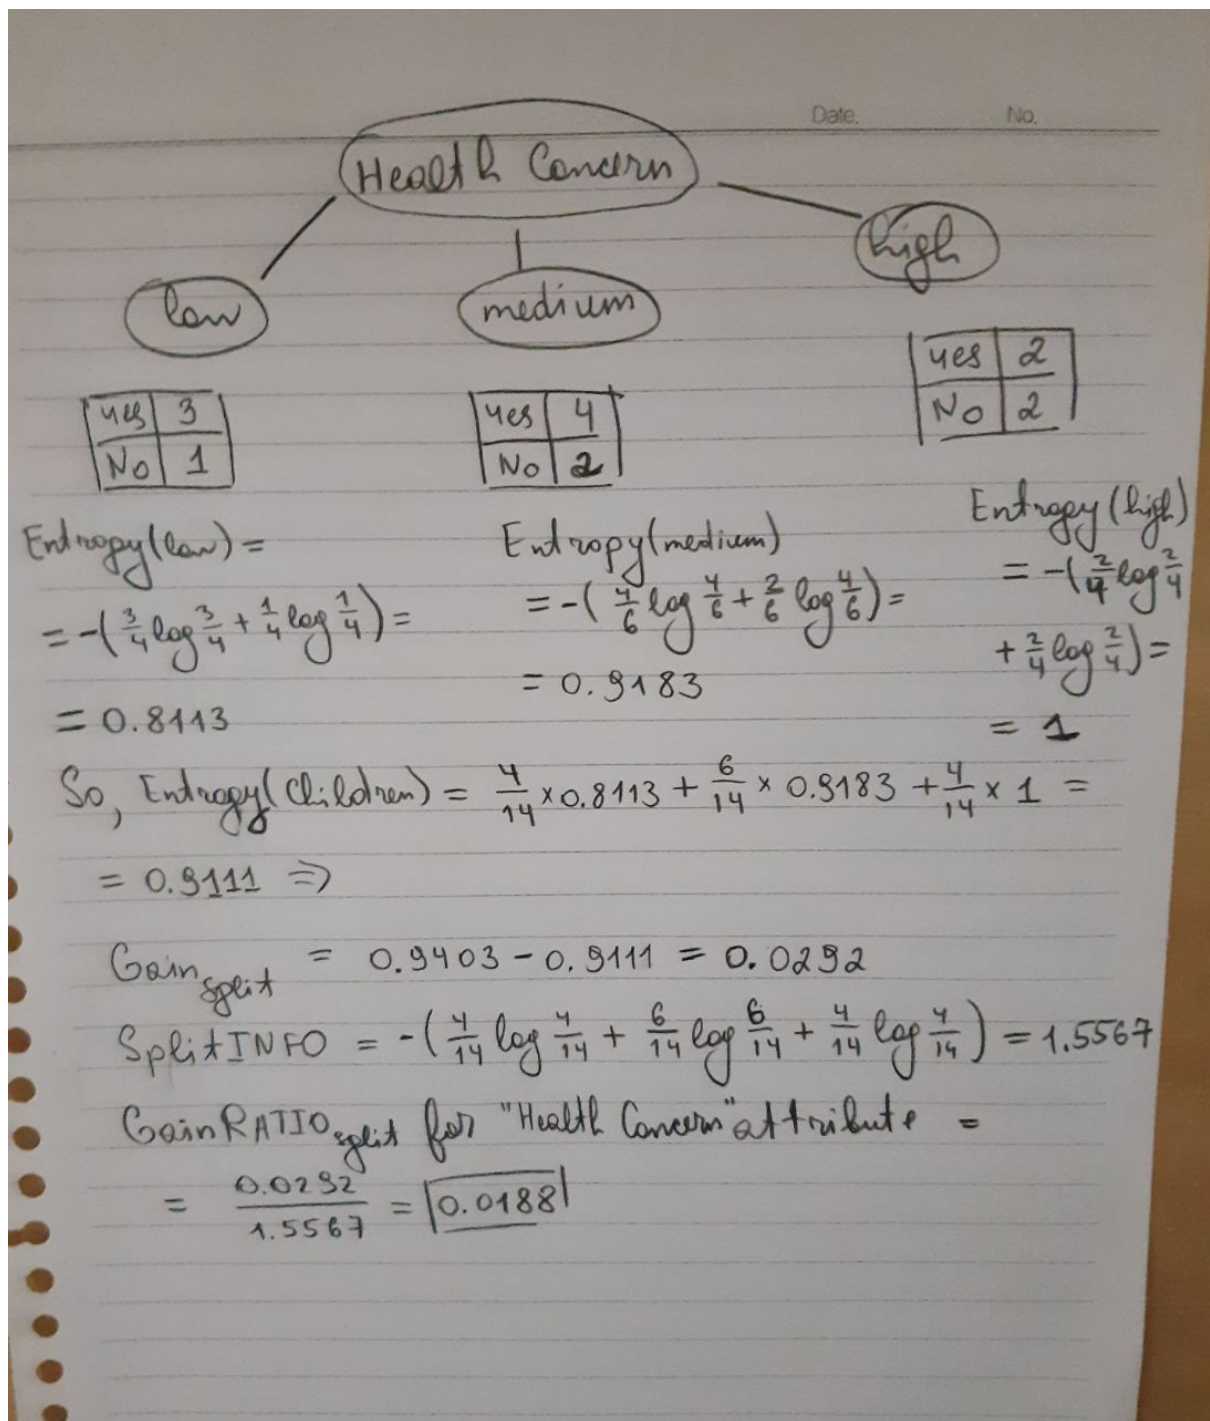 Date. No.
Health Concern
low medium high
yes 3
No 1
yes 4
No 2
yes 2
No 2
Entropy(low) =
= -(3/4 log 3/4 + 1/4 log 1/4) =
= 0.8113
Entropy(medium)
= -(4/6 log 4/6 + 2/6 log 4/6) =
= 0.9183
Entropy(high)
= -(2/4 log 2/4
+ 2/4 log 2/4) =
= 1
So, Entropy(Children) = 4/14 × 0.8113 + 6/14 × 0.9183 + 4/14 × 1 =
= 0.9111 ⇒
Gain split = 0.9403 - 0.9111 = 0.0292
SplitINFO = -(4/14 log 4/14 + 6/14 log 6/14 + 4/14 log 4/14) = 1.5567
GainRATIO split for "Health Concern" attribute =
= 0.0292/1.5567 = 0.0188